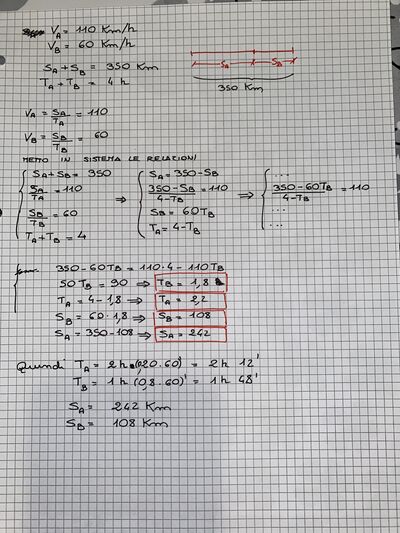 V_A = 110 Km/h
V_B = 60 Km/h
S_A + S_B = 350 Km
T_A + T_B = 4 h
S_A S_B
350 Km
V_A = S_A/T_A = 110
V_B = S_B/T_B = 60
METTO IN SISTEMA LE RELAZIONI
S_A + S_B = 350 S_A = 350 - S_B ....
S_A/T_A = 110 ⇒ (350 - S_B)/(4 - T_B) = 110 ⇒ (350 - 60T_B)/(4 - T_B) = 110
S_B/T_B = 60 S_B = 60T_B ....
T_A + T_B = 4 T_A = 4 - T_B ....
350 - 60T_B = 110·4 - 110T_B
50T_B = 90 ⇒ T_B = 1,8
T_A = 4 - 1,8 ⇒ T_A = 2,2
S_B = 60·1,8 ⇒ S_B = 108
S_A = 350 - 108 ⇒ S_A = 242
Quindi T_A = 2h (0,20·60)' = 2h 12'
T_B = 1h (0,8·60)' = 1h 48'
S_A = 242 Km
S_B = 108 Km